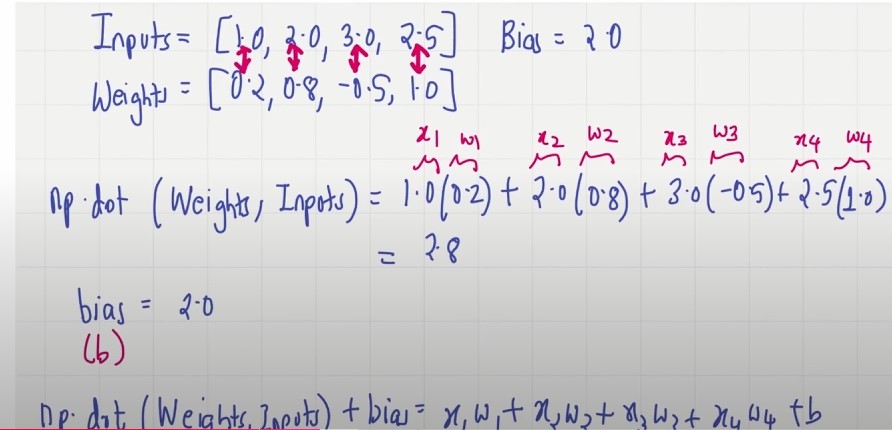 Inputs = [1.0, 2.0, 3.0, 2.5] Bias = 2.0
Weights = [0.2, 0.8, -0.5, 1.0]
x1 w1 x2 w2 x3 w3 x4 w4
np.dot (Weights, Inputs) = 1.0(0.2) + 2.0(0.8) + 3.0(-0.5) + 2.5(1.0)
= 2.8
bias = 2.0
(b)
np.dot (Weights, Inputs) + bias = x1w1 + x2w2 + x3w3 + x4w4 + b